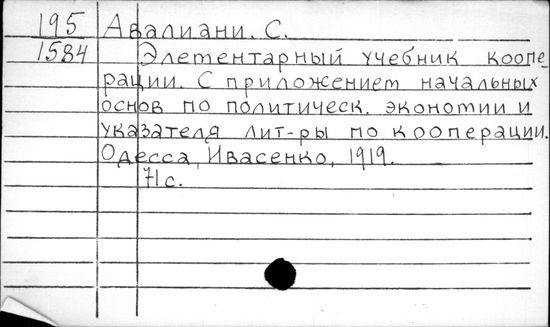 195 Авалиани. С.
1584 Элементарный учебник коопе-
рации. С приложением начальных
основ по политическ. экономии и
указателя лит-ры по кооперации.
Одесса, Ивасенко, 1919.
71 с.